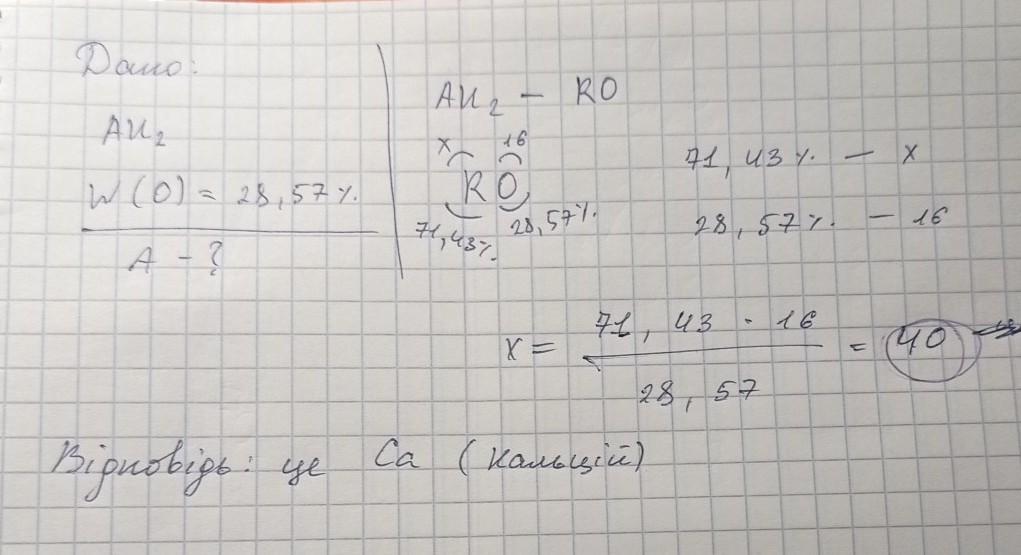 Дано:
AH₂
W(O) = 28,57%.
A - ?
AH₂ - RO
x 16
RO
71,43%. 28,57%.
71,43%. - x
28,57%. - 16
x = 71,43 · 16 / 28,57 = 40
Відповідь: це Ca (кальцій)